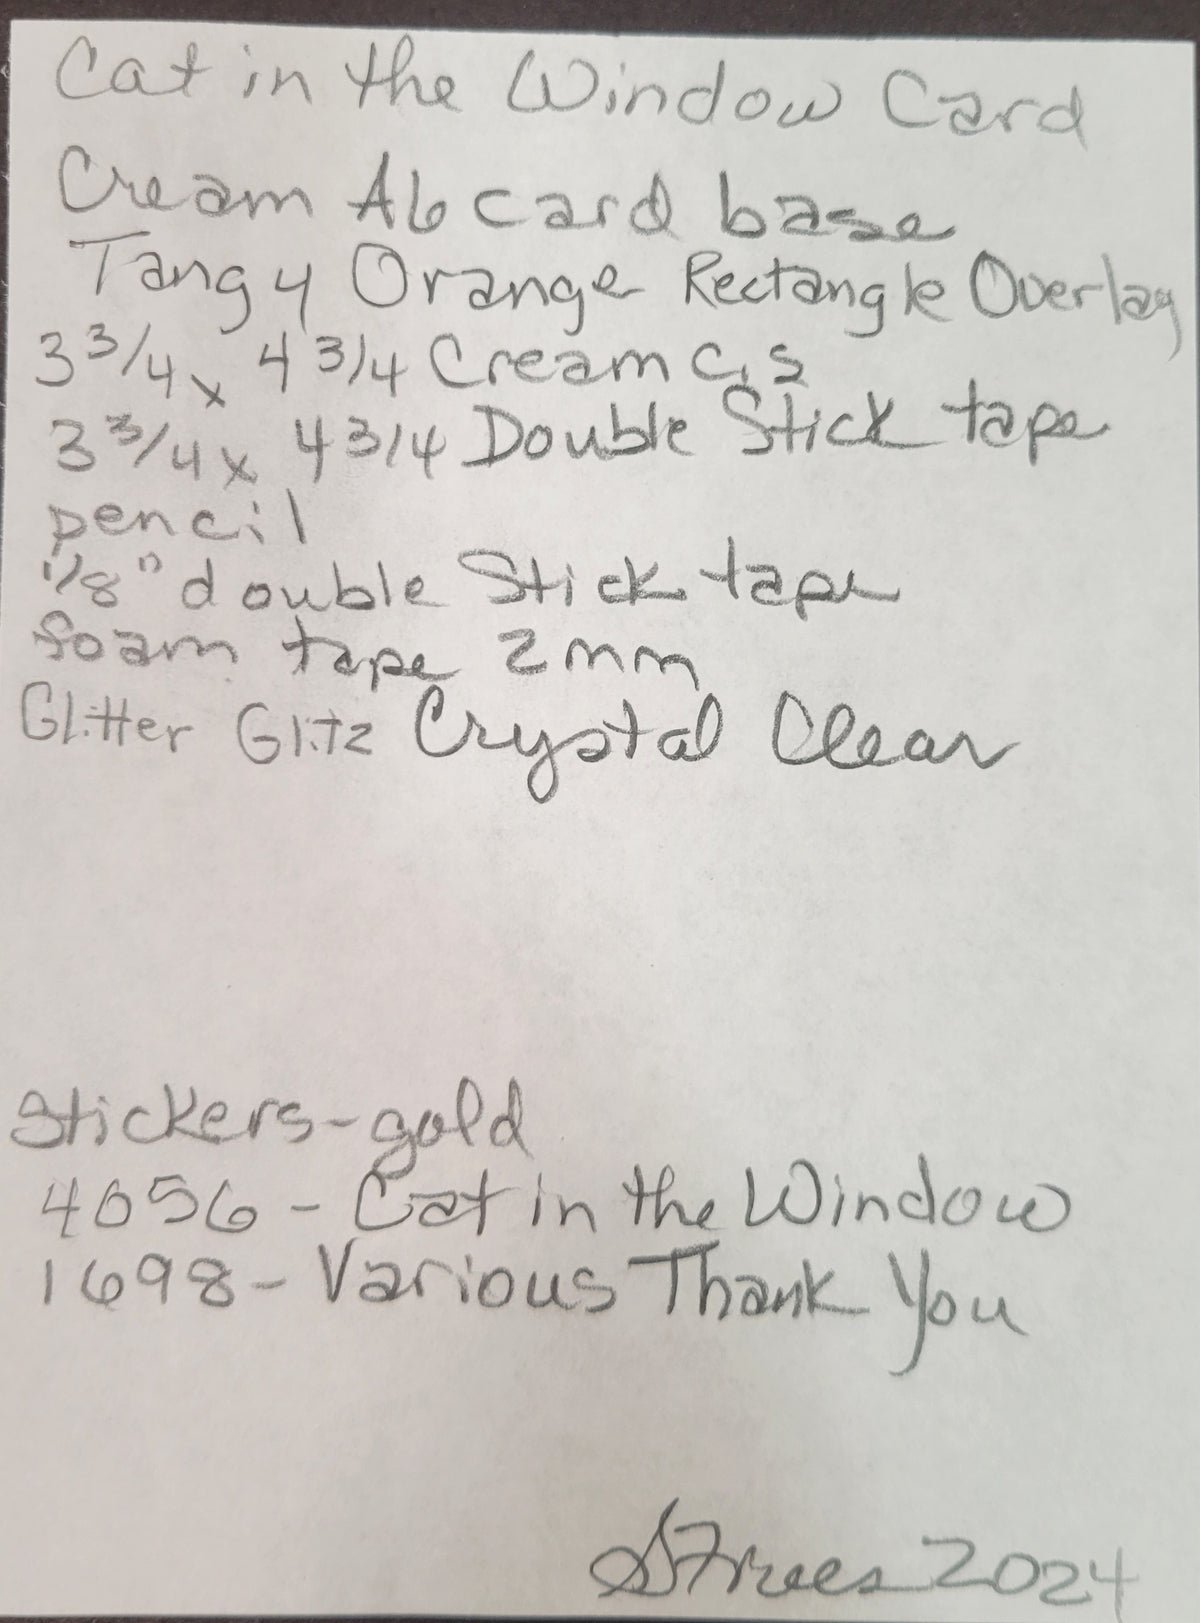 Cat in the Window Card
Cream A6 card base
Tangy Orange Rectangle Overlay
3 3/4 x 4 3/4 Cream C.S
3 3/4 x 4 3/4 Double Stick tape
pencil
1/8" double Stick tape
foam tape 2mm
Glitter Glitz Crystal Clear
Stickers-gold
4056 - Cat in the Window
1698 - Various Thank You
2024